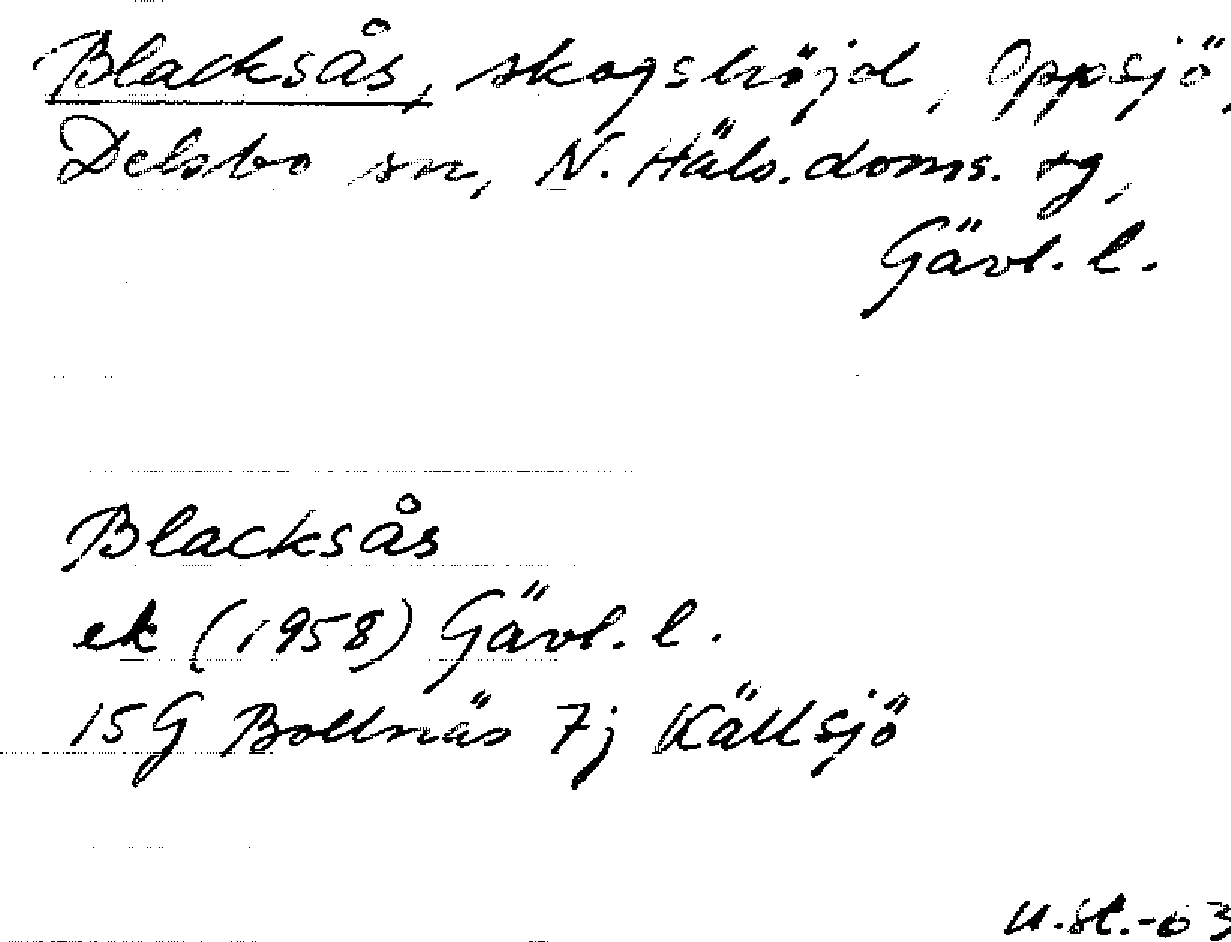 Blacksås, skogshöjd, Oppsjö,
Delsbo sn, N. Häls. doms. tg,
Gävl. l.
Blacksås
ek (1958) Gävl. l.
15G Bollnäs 7j Källsjö
U.St.-63